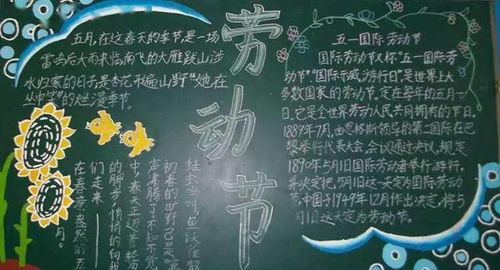 五月,在这春天的季节是一场
雷鸣后大雨来临南飞的大雁跋山涉
水归家的日子是杏花布遍山野“她在
丛中笑”的烂漫季节。
劳动节
五一国际劳动节
国际劳动节又称“五一国际劳
动节”“国际示威游行日”是世界上大
多数国家的劳动节。定在每年的五月一
日。它是全世界劳动人民共同拥有的节日。
1889年7月,由恩格斯领导的第二国际在巴
黎举行代表大会,会议通过决议,规定
1890年5月1日国际劳动者举行游行,
并决定把5月1日这一天定为国际劳动节
。中国于1949年12月作出决定,将5
月1日这一天定为劳动节。
初春的田野已是
声沸腾了不知不觉
中,春天正迈着轻
的脚步悄悄的向我
们走来
在春意盎然的五
月。